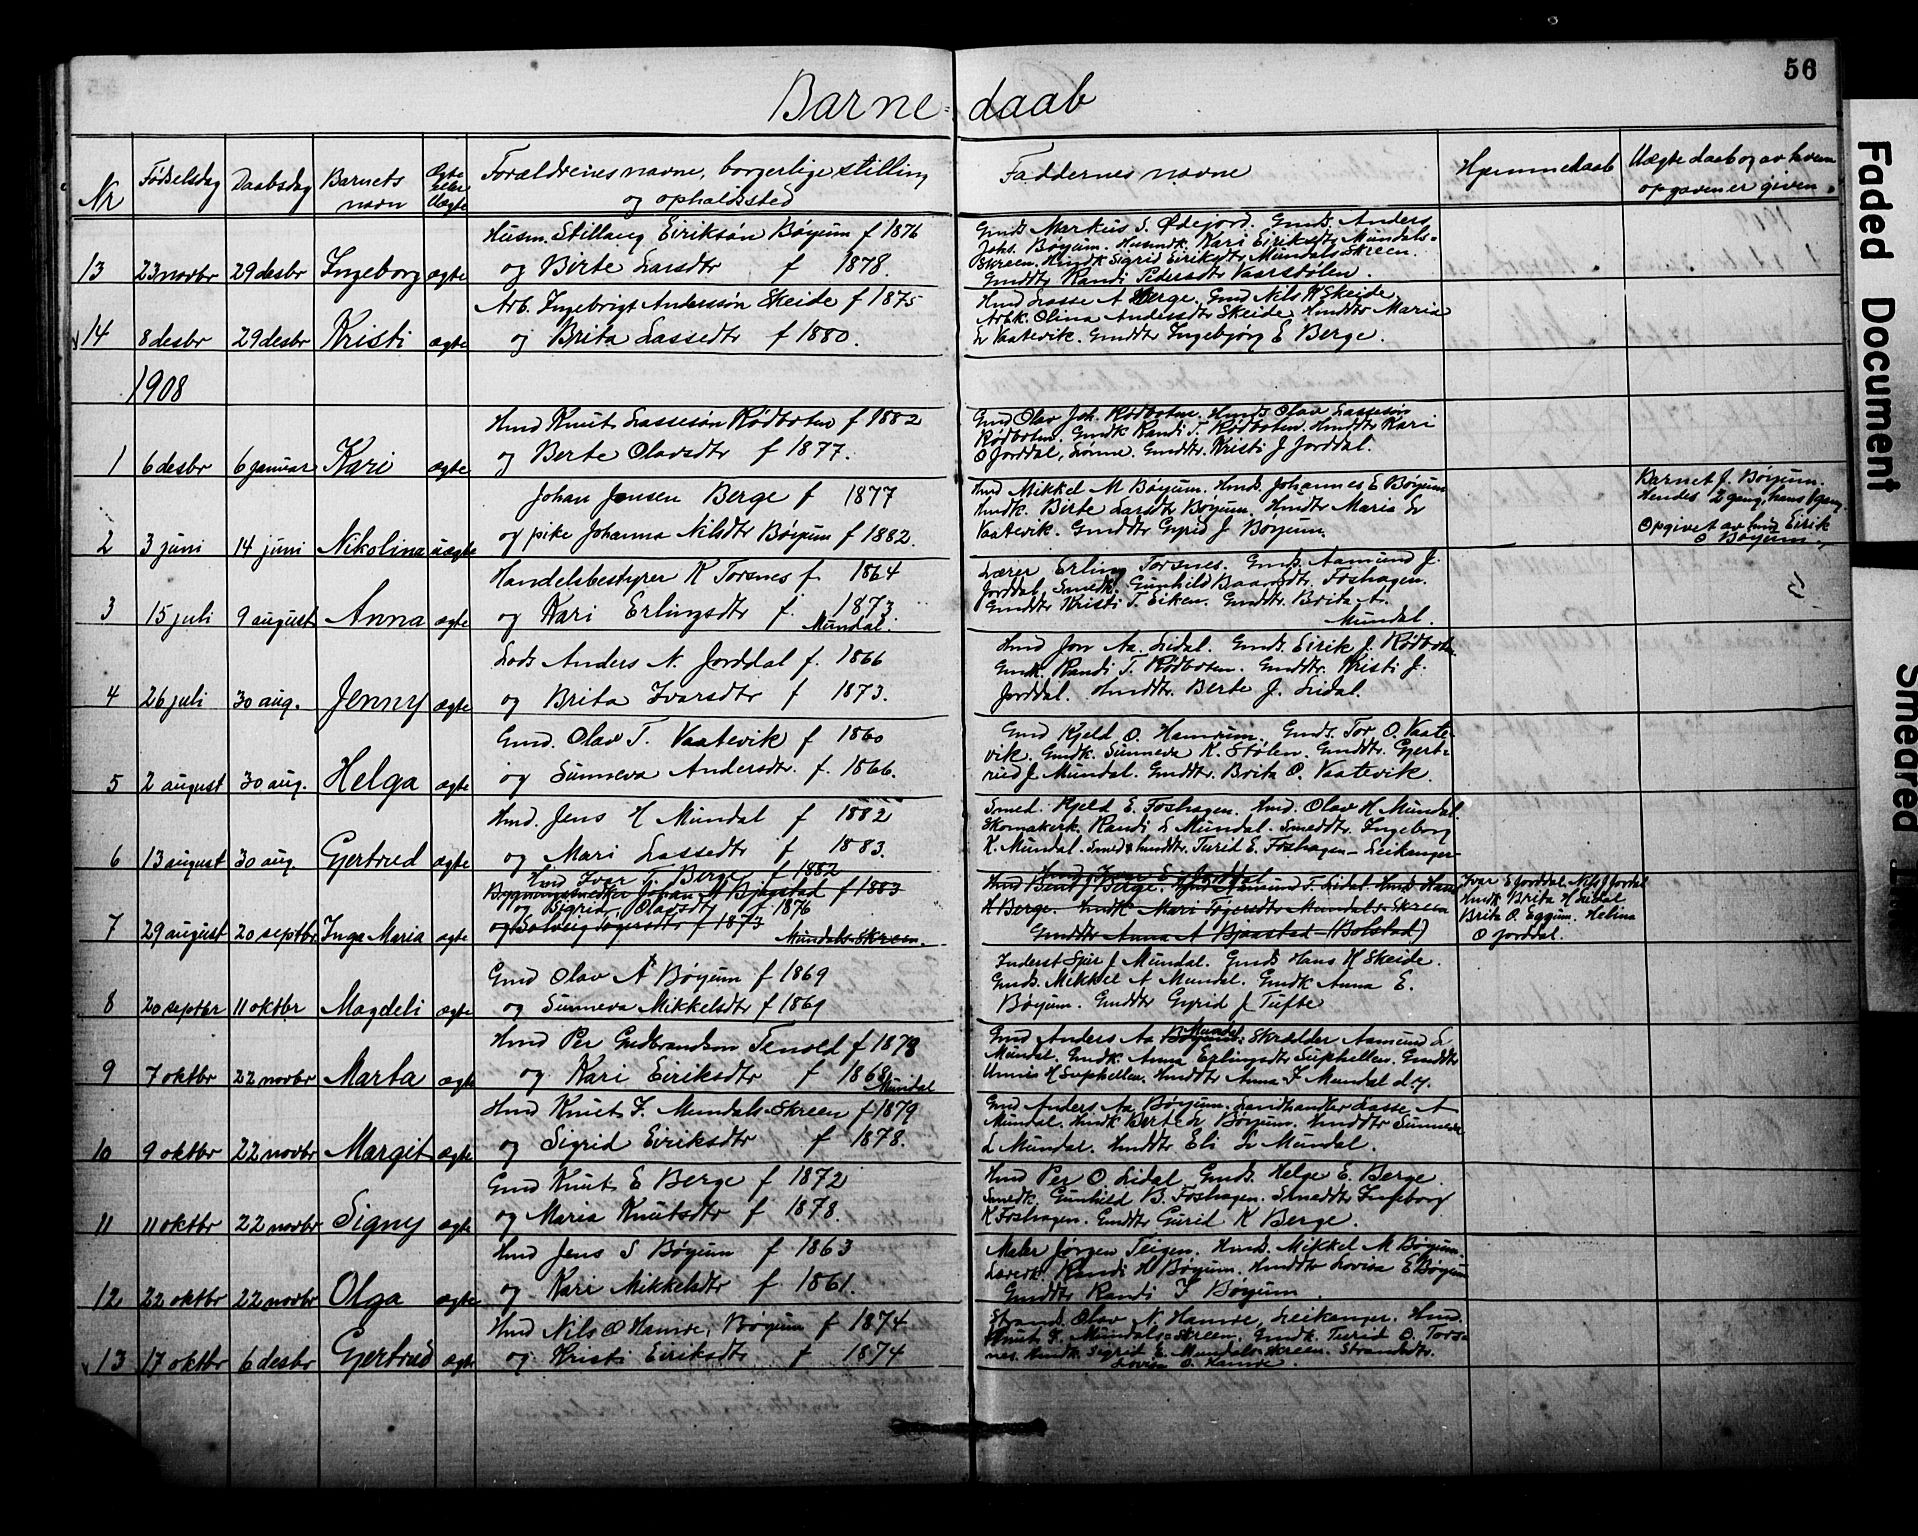 56
Barne-daab
Nr
Fødselsdag
Daabsdag
Barnets navn
Ægte eller Uægte
Forældrenes navne, borgerlige stilling og opholdssted
Faddernes navne
Hjemmedaab
Uægte daab og av hvem opgaven er given.
13 23 novbr 29 desbr Ingeborg ægte
Husm. Stillaug Eiriksøn Bøyum f 1876
og Birte Larsdtr f 1878.
Gmds Markus S. Ødejord. Gmds. Anders
Johs. Bøyum. Husmdk. Kari Eiriksdtr Mundals-
skreen. Hmdk Sigrid Eiriksdtr Mundalsskreen.
Gmddtr Randi Pedersdtr
14 8 desbr 29 desbr Kristi ægte
Arb. Ingebrigt Anderssøn Skeide f 1875
og Brita Lassedtr f 1880.
Hmd Lasse A Berge. Gmd Nils K Skeide
Arbk. Olina Andersdtr Skeide. Hmddtr Maria
L Vaatevik. Gmddtr Ingebjørg E Berge.
1908
1 6 desbr 6 januar Kari ægte
Hmd Knut Lassesøn Rødboten f 1882
og Berte Olavsdtr f 1877.
Gmd Olav Joh. Rødboten. Hmds Olav Lassesøn
Rødboten. Gmdk Randi T. Rødboten. Hmddtr Kari
O Jorddal, Lønne. Gmddtr. Kristi J Jorddal.
2 3 juni 14 juni Nikolina uægte
Johan Jensen Berge f 1877
og pike Johanna Nilsdtr Bøyum f 1882.
Hmd Mikkel M Bøyum. Hmds. Johannes E Bøyum
Hmdk. Berte Larsdtr Bøyum. Hmddtr Maria L
Vaatevik. Gmddtr Gyrid J Bøyum.
Barnet f. Bøyum.
Hendes 2 gang, hans 1 gang
Opgivet av hmd Eirik
O Bøyum.
3 15 juli 9 august Anna ægte
Handelsbestyrer K Torsnes f. 1864
og Kari Erlingsdtr f. 1873
Mundal.
Lærer Erling Torsnes. Gmds Aamund J.
Jorddal. Smedk. Gunhild Baardsdtr. Foshagen.
Gmddtr Kristi T. Eiken. Gmddtr. Brita A.
Mundal.
4 26 juli 30 aug. Jenny ægte
Lods Anders N. Jorddal f. 1866
og Brita Ivarsdtr f 1873.
Hmd Jon Aa. Lidal. Gmds. Eirik J. Rødboten.
Gmdk. Randi T. Rødboten. Gmddtr. Kristi J.
Jorddal. Hmddtr. Berte J. Lidal.
5 2 august 30 aug. Helga ægte
Gmd. Olav T. Vaatevik f 1860
og Sunneva Andersdtr. f. 1866.
Gmd Kjeld O. Hamrum. Gmds. Tor O. Vaate-
vik. Gmdk. Sunneva K. Stølen. Gmddtr. Gjert-
rud J. Mundal. Gmddtr. Brita O. Vaatevik.
6 13 august 30 aug. Gjertrud ægte
Hmd. Jens H Mundal f 1882
og Mari Lassedtr f 1883.
Smed. Kjeld E. Foshagen. Hmd. Olav H Mundal.
Skomakerk. Randi L Mundal. Smeddtr. Ingeborg
K. Mundal. Smed & hmddtr. Turid E. Foshagen - Leikanger
7 29 august 20 septbr Inga Maria ægte
Hmd Ivar T. Berge f 1882
Bygningssnedker Johan M Bjåstad f 1883
og Sigrid Olavsdtr f 1876
og Solveig Aagesdtr f 1873
Mundals-Skreen.
Hmd. Ivar E Jorddal
Hmd Bent J Berge. Hmd Eimund T. Lidal. Hmds Hans
H Berge. Hmdk Mari Mundals-Skreen
Gmddtr Anna A Bjaastad (Bolstad)
Ivar E Jorddal. Nils J Jordal
Hmdk Brita H Lidal
Brita O. Eggum. Helina
O Jorddal.
8 20 septbr 11 oktbr Magdeli ægte
Gmd Olav A Bøyum f 1869
og Sunneva Mikkelsdtr f 1869
Inderst Sjur J Mundal. Gmds Hans H Skeide.
Gmds. Mikkel A Mundal. Gmdk Anna E.
Bøyum. Gmddtr Gyrid J Tufte
9 7 oktbr 22 novbr Marta ægte
Hmd Per Gudbrandson Tenold f 1878
og Kari Eiriksdtr f 1868
Mundal
Gmd Anders Aa Bøyum Mundal. Skrædder Aamund L
Mundal. Gmdk. Anna Erlingsdtr Suphellen. Gmddtr
Unni H Suphellen. Hmddtr Anna I Mundal d.y.
10 9 oktbr 22 novbr Margit ægte
Hmd Knut I. Mundals-Skreen f 1879
og Sigrid Eiriksdtr f 1878.
Gmd Anders Aa Bøyum. Landhandler Lasse A
Mundal. Hmdk Berte L Bøyum. Hmddtr Sunneva
L Mundal. Hmddtr Eli L Mundal.
11 11 oktbr 22 novbr Signy ægte
Gmd Knut E Berge f 1872
og Maria Knutsdtr f 1878.
Hmd Per O. Lidal. Gmds. Helge E. Berge.
Smedk. Gunhild B. Foshagen. Smeddtr Ingeborg
K Foshagen. Gmddtr Gurid K Berge.
12 22 oktbr 22 novbr Olga ægte
Hmd Jens S Bøyum f 1863
og Kari Mikkelsdtr f 1861.
Maler Jørgen Teigen. Hmds. Mikkel M Bøyum.
Lærerk. Randi H Bøyum. Hmddtr Lovisa E Bøyum
Gmddtr Randi I Bøyum.
13 17 oktbr 6 desbr Gjertrud ægte
Hmd Nils O Hamre, Bøyum f 1874
og Kristi Eiriksdtr f 1874
Strands. Olav N. Hamre, Leikanger. Hmd.
Knut I. Mundals-skreen. Gmdk. Turid O. Tors-
nes. Hmdk. Sigrid E. Mundals-skreen. Stranddtr.
Lovisa O. Hamre.
Faded Document
Smeared